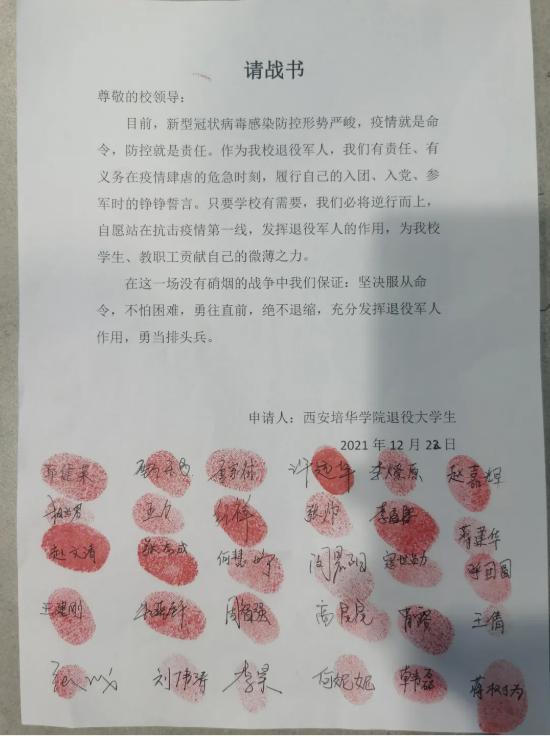 请战书
尊敬的校领导：
目前，新型冠状病毒感染防控形势严峻，疫情就是命
令，防控就是责任。作为我校退役军人，我们有责任、有
义务在疫情肆虐的危急时刻，履行自己的入团、入党、参
军时的铮铮誓言。只要学校有需要，我们必将逆行而上，
自愿站在抗击疫情第一线，发挥退役军人的作用，为我校
学生、教职工贡献自己的微薄之力。
在这一场没有硝烟的战争中我们保证：坚决服从命
令，不怕困难，勇往直前，绝不退缩，充分发挥退役军人
作用，勇当排头兵。
申请人：西安培华学院退役大学生
2021 年 12 月 22 日
赵嘉辉
张帅
赵文涛
王建刚 周智强 高昆虎 王倩
刘伟涛 李杲 何妮妮 韩磊